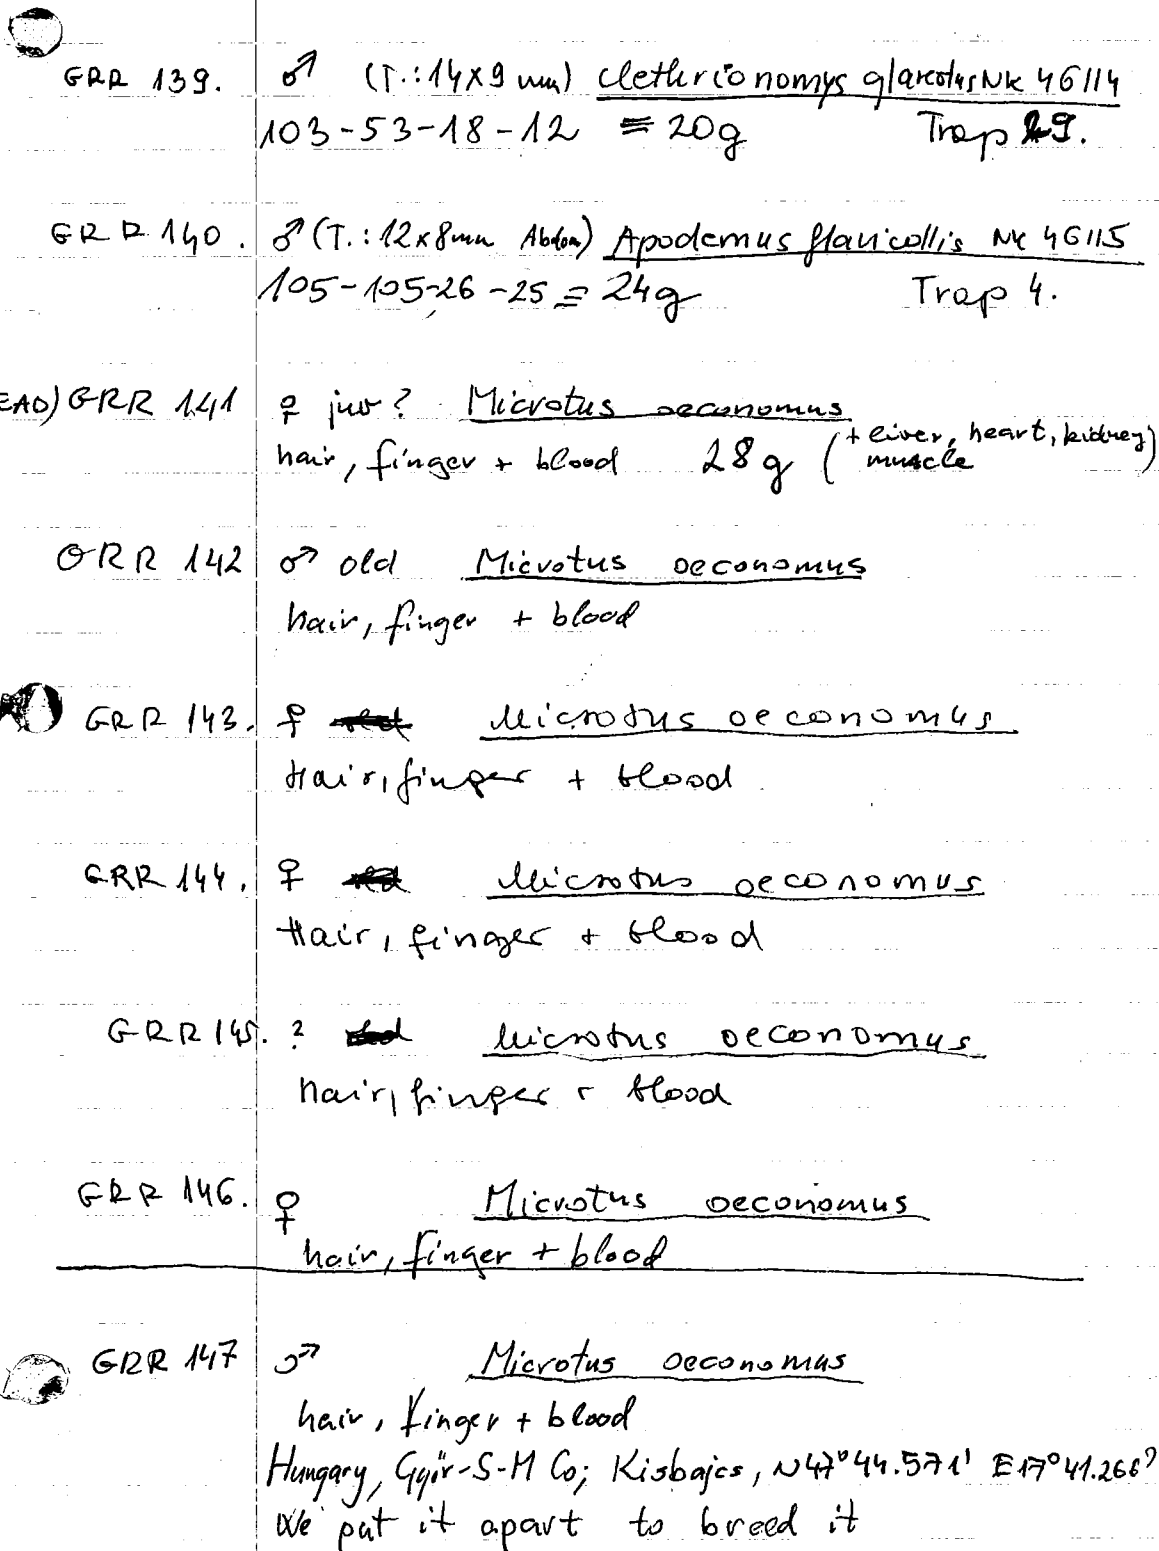 GRR 139. ♂ (T.: 14x9 mm) Clethrionomys glareolus NK 46114
103-53-18-12 ≡ 20g Trap 9.
GRR 140. ♂ (T.: 12x8mm Abdom) Apodemus flavicollis NK 46115
105-105-26-25 ≡ 24g Trap 4.
EAD) GRR 141 ♀ juv? Microtus oeconomus
hair, finger + blood 28g (+ liver, heart, kidney)
muscle
GRR 142 ♂ old Microtus oeconomus
hair, finger + blood
GRR 143. ♀ Microtus oeconomus
Hair, finger + blood
GRR 144. ♀ Microtus oeconomus
Hair, finger + blood
GRR 145. ? Microtus oeconomus
hair, finger + blood
GRR 146. ♀ Microtus oeconomus
hair, finger + blood
GRR 147 ♂ Microtus oeconomus
hair, finger + blood
Hungary, Győr-S-M Co; Kisbajcs, N47°44.571' E17°41.266'
We put it apart to breed it